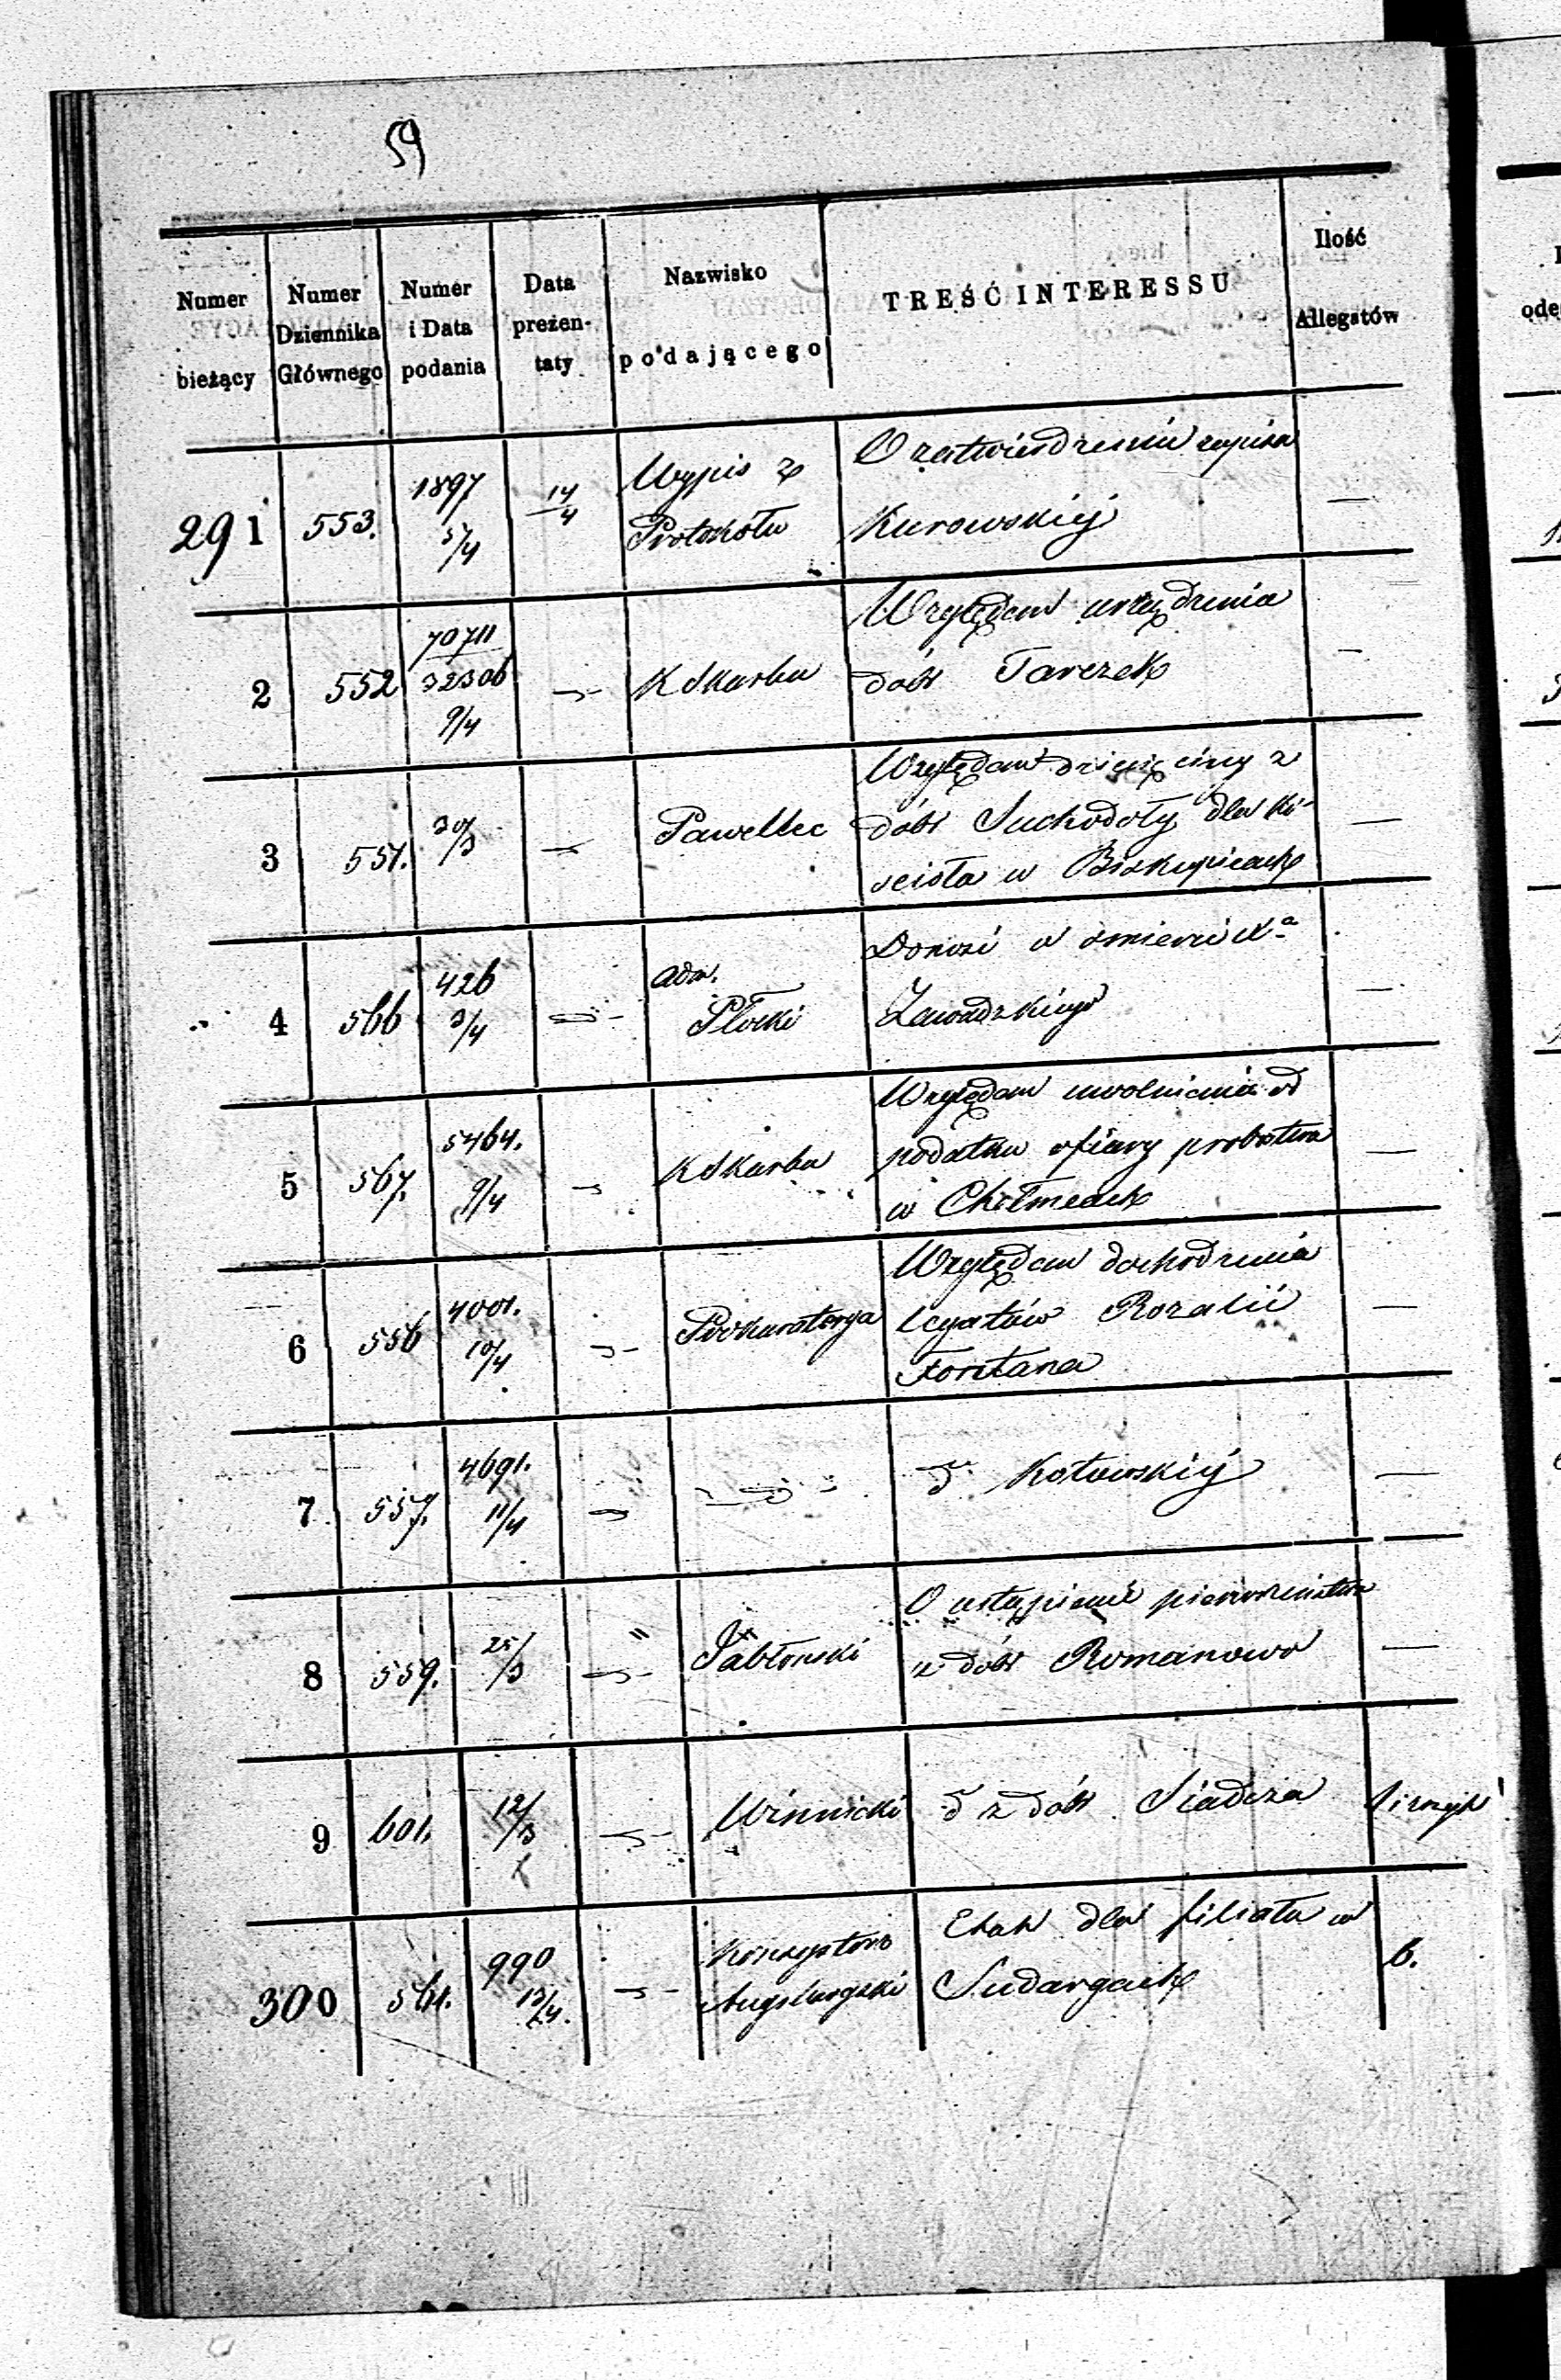 59
Numer bieżący | Numer Dziennika Głównego | Numer i Data podania | Data prezen-taty | Nazwisko podającego | TREŚĆ INTERESSU | Ilość Allegatów
291 | 553. | 1897 5/4 | 14/4 | Wypis z Protokołu | O zatwierdzenie zapisu Kurowskiéj | —
2 | 552 | 70711/32306 9/4 | — | K Skarbu | Względem urządzenia dóbr Tarczek | —
3 | 551. | 30/3 | — | Pawelec | Względem dziesięciny z dóbr Suchodoły dla Kościoła w Biskupicach | —
4 | 566 | 426 3/4 | — | Adm. Płocki | Donosi o śmierci Xa Zawadzkiego | —
5 | 567. | 5464. 9/4 | — | K Skarbu | Względem uwolnienia od podatku ofiary probostwa w Chełmcach | —
6 | 556 | 4001. 10/4 | — | Prokuratorya | Względem dochodzenia legatów Rozalii Fontana | —
7 | 557. | 4691. 11/4 | — | — | d° Kotowskiéj | —
8 | 559. | 25/3 | — | Jabłoński | O ustąpienie pierwszeństwa z dóbr Romanowo | —
9 | 601. | 12/3 | — | Winnicki | d° z dóbr Siadcza
300 | 561. | 990 13/4. | — | Konsystorz Augustowski | Etat dla filiału w Sudargach | 6.